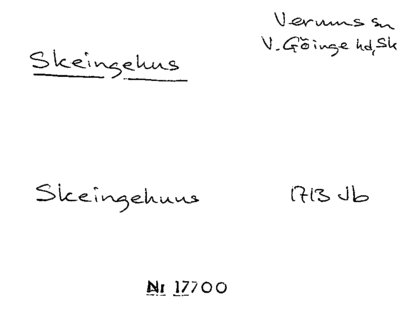 Verums sn
V. Göinge hd, Sk
Skeingehus
Skeingehuus 1713 Jb
Nr 17700